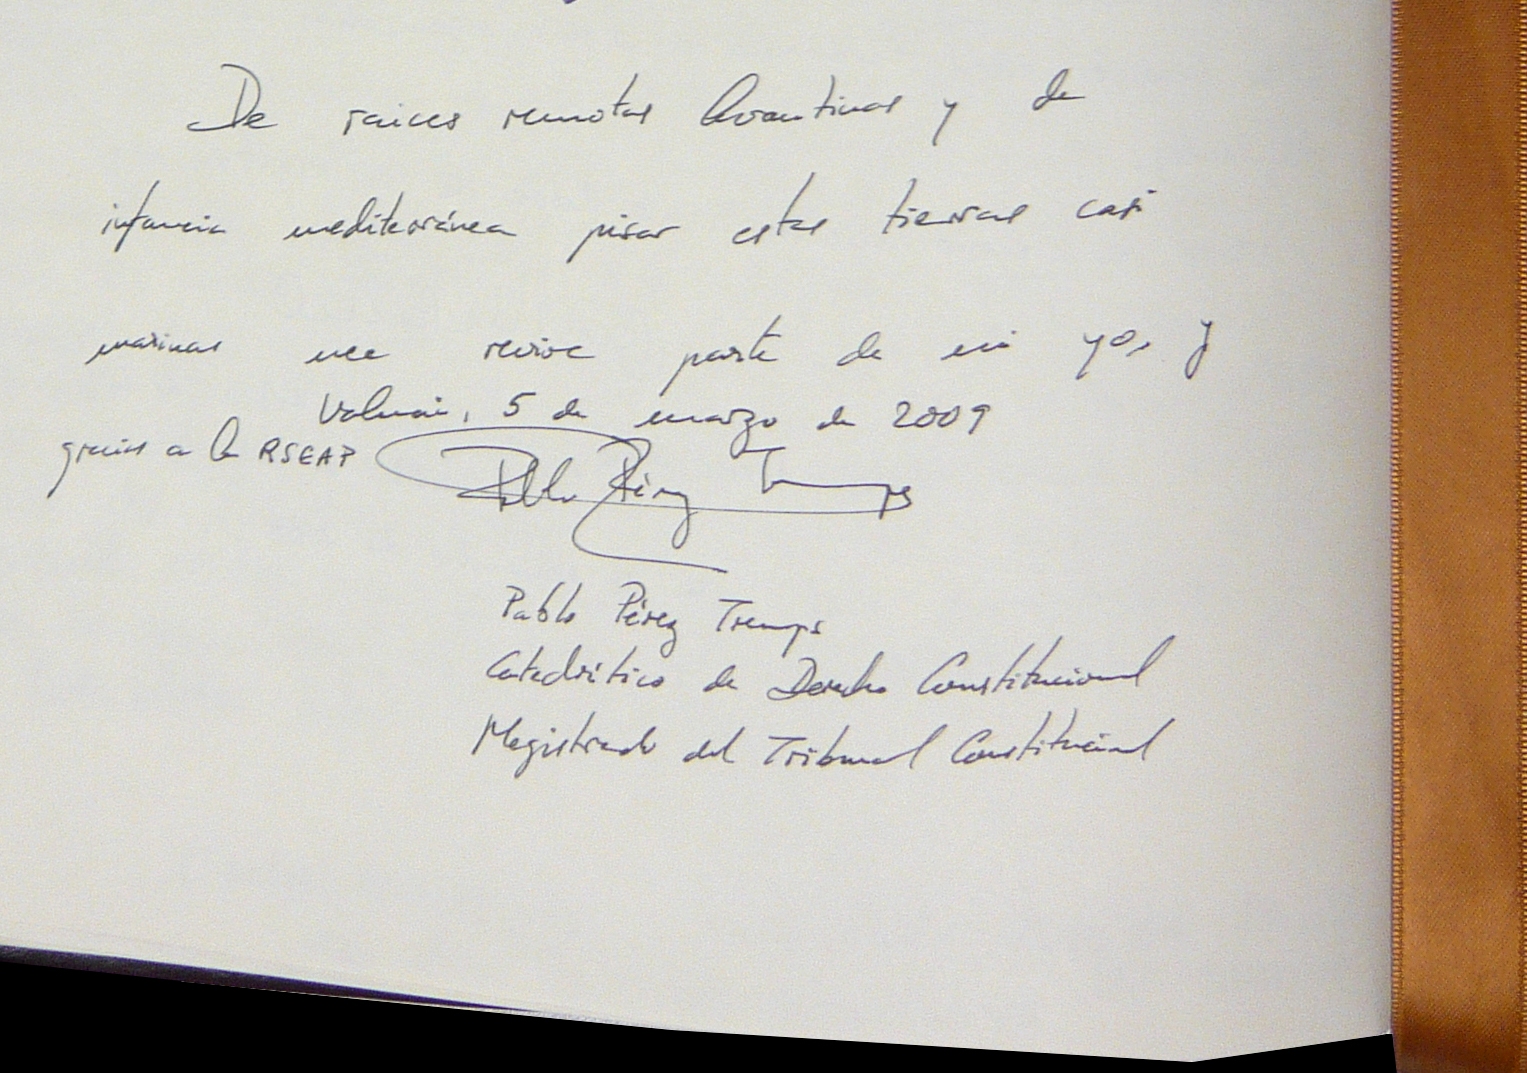 De raices remotas levantinas y de
infancia mediterránea pisar estas tierras casi
marinas me revive parte de mi yo, y
Valencia, 5 de marzo de 2009
gracias a la RSEAP
Pablo Pérez Tremps
Pablo Pérez Tremps
Catedrático de Derecho Constitucional
Magistrado del Tribunal Constitucional